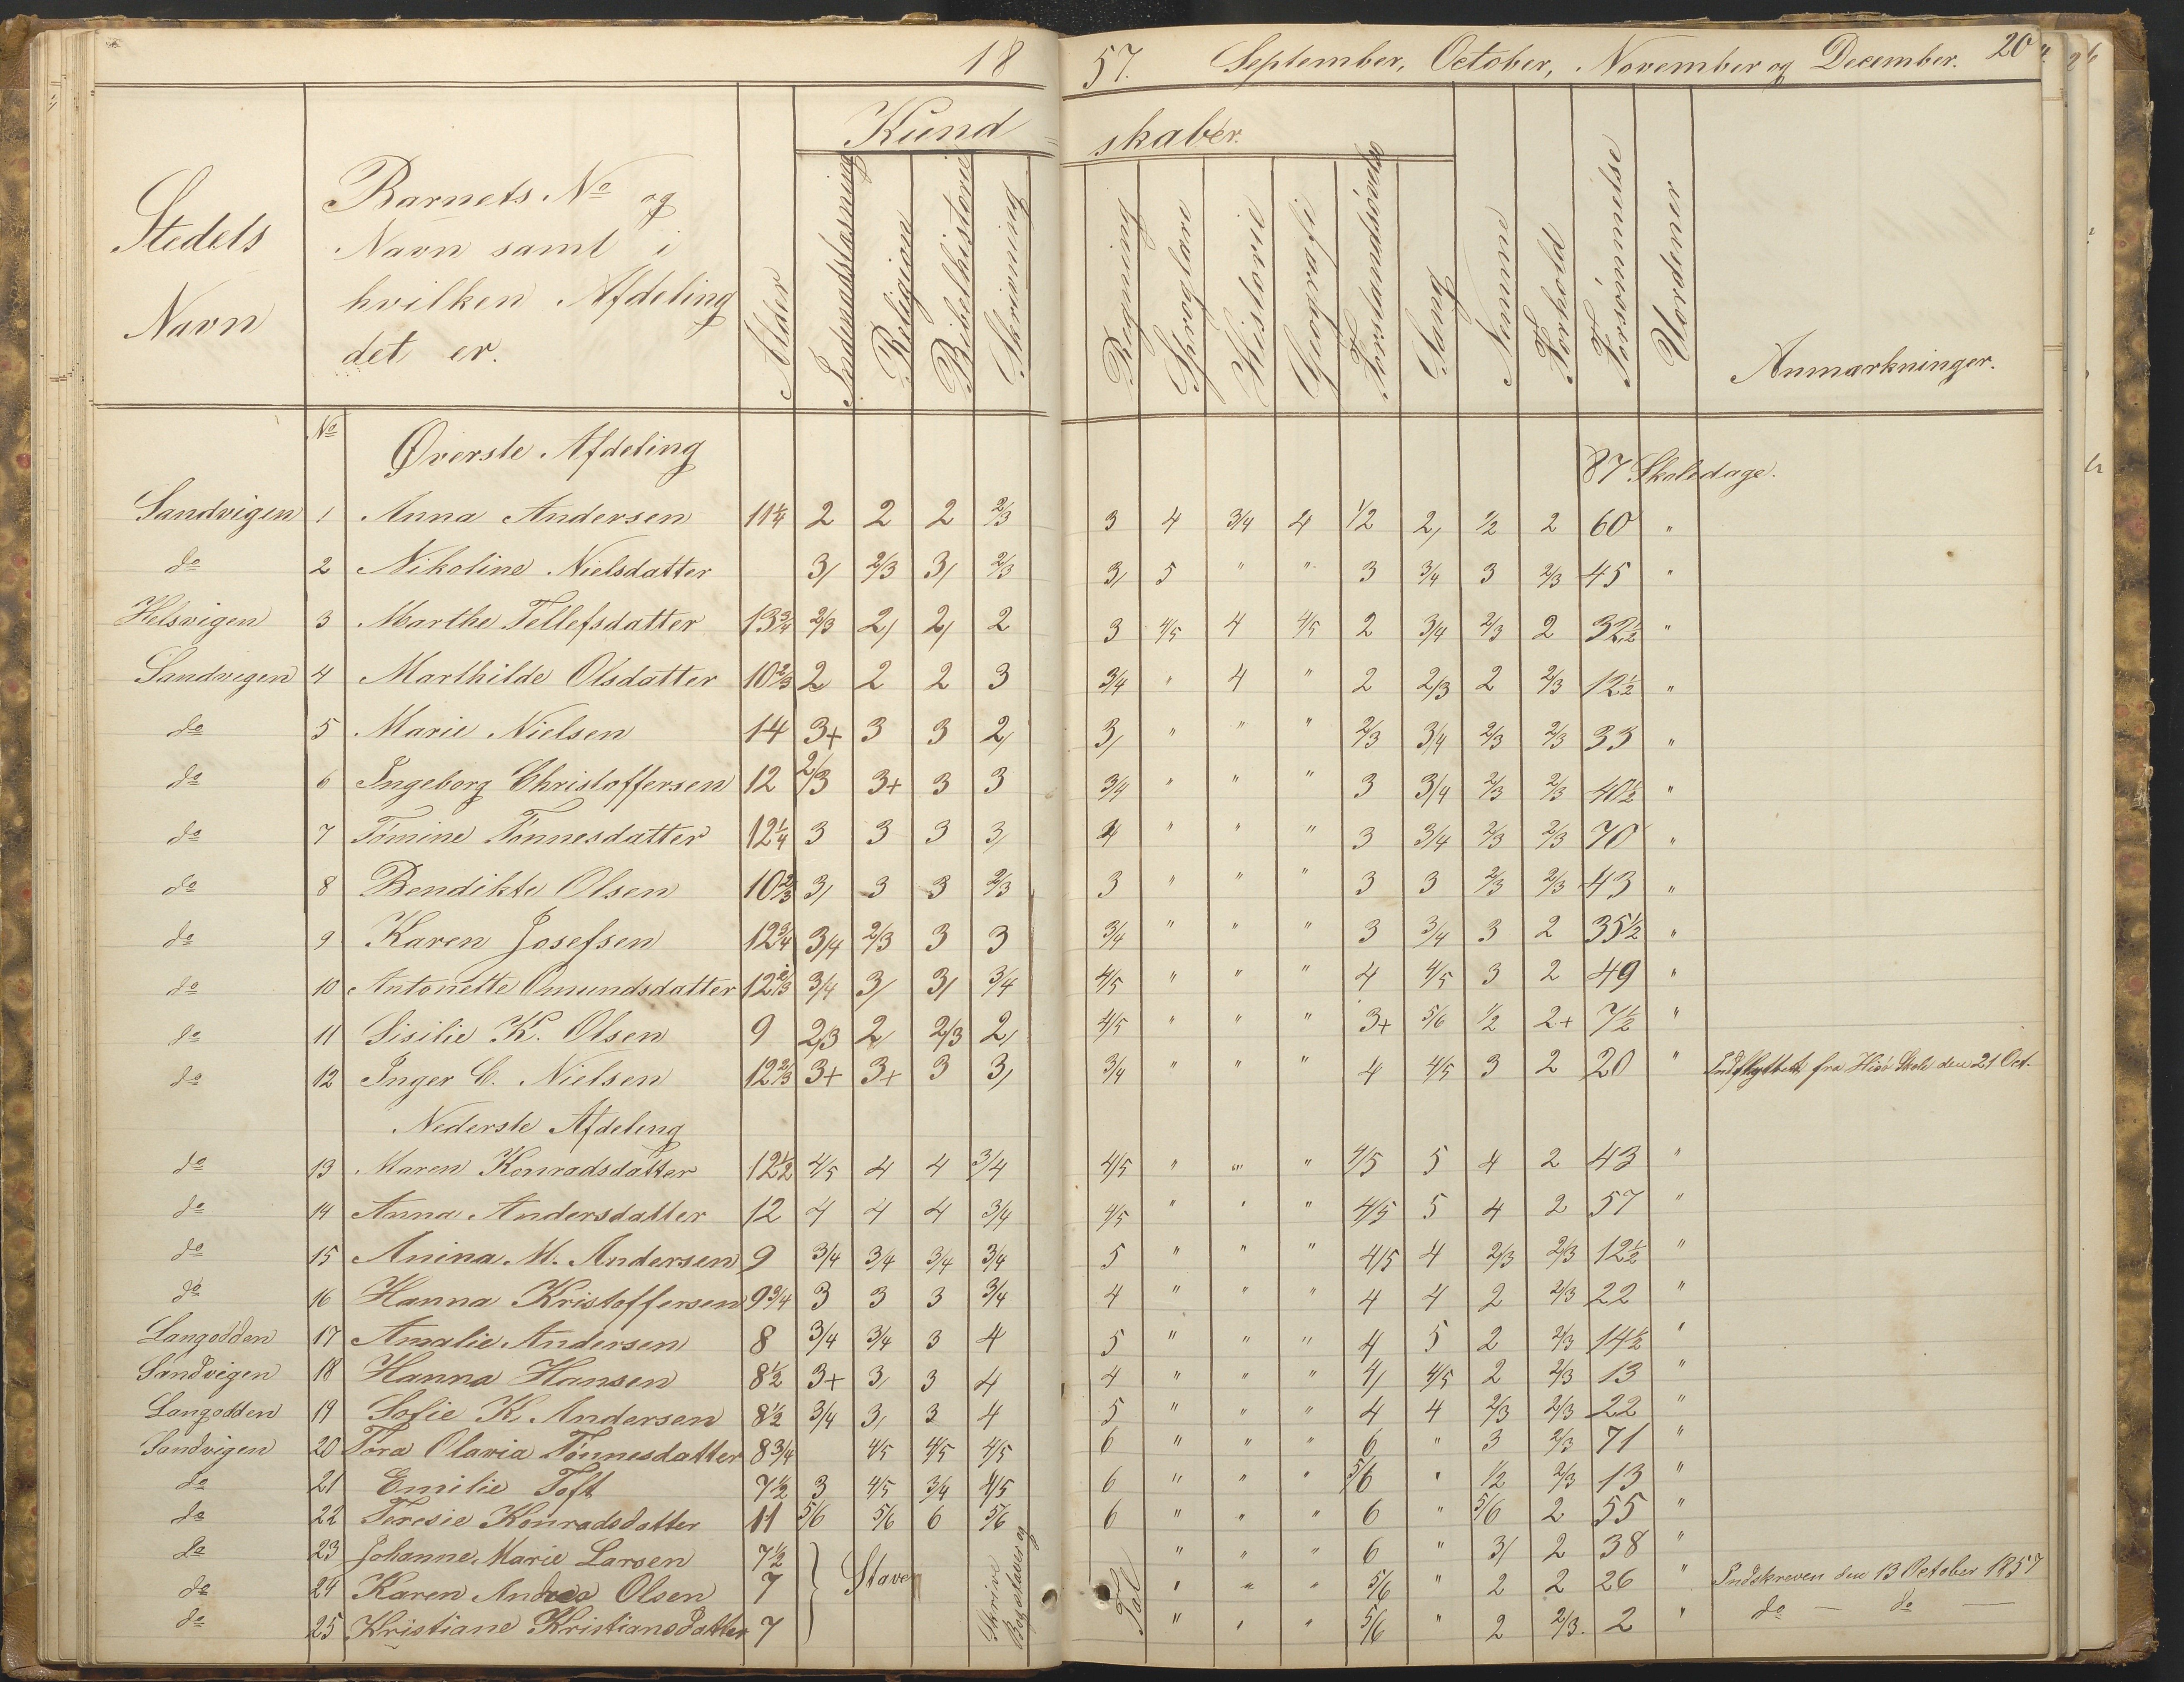 18 57. September, October, November og December. 20
Kund= skaber.
Stedets Navn
Barnets No og Navn samt i hvilken Afdeling det er.
Alder
Indenadslæsning
Religion
Bibelhistorie
Skrivning
Regning
Sproglære
Historie
Geografi
Forstandsøvelse
Sang
Nemme
Forhold
Forsømmelse
Uordener
Anmærkninger.
No Øverste Afdeling 87 Skoledage.
Sandvigen 1 Anna Andersen 11¼ 2 2 2 2/3 3 4 3/4 4 1/2 2, 1/2 2 60 "
do 2 Nikoline Nielsdatter 3/ 2/3 3/ 2/3 3/ 5 " " 3 3/4 3 2/3 45 "
Helsvigen 3 Marthe Tellefsdatter 13¾ 2/3 2/ 2/ 2 3 4/5 4 4/5 2 3/4 2/3 2 32½ "
Sandvigen 4 Marthilde Olsdatter 10⅔ 2 2 2 3 3/4 " 4 " 2 2/3 2 2/3 12½ "
do 5 Marie Nielsen 14 3+ 3 3 2, 3, " " " 2/3 3/4 2/3 2/3 33 "
do 6 Ingeborg Christoffersen 12 2/3 3+ 3 3 3/4 " " " 3 3/4 2/3 2/3 40½ "
do 7 Tømine Tønnesdatter 12¼ 3 3 3 3/ 4 " " " 3 3/4 2/3 2/3 70 "
do 8 Bendikte Olsen 10⅔ 3/ 3 3 2/3 3 " " " 3 3 2/3 2/3 43 "
do 9 Karen Josefsen 12¾ 3/4 2/3 3 3 3/4 " " " 3 3/4 3 2 35½ "
do 10 Antonette Omundsdatter 12⅔ 3/4 3/ 3/ 3/4 4/5 " " " 4 4/5 3 2 49 "
do 11 Sisilie K. Olsen 9 2/3 2/ 2/3 2, 4/5 " " " 3+ 5/6 1/2 2+ 7½ "
do 12 Inger C. Nielsen 12⅔ 3+ 3+ 3 3, 3/4 " " " 4 4/5 3 2 20 " Indflyttet fra Hisø Skole den 21 Oct.
Nederste Afdeling
do 13 Maren Konradsdatter 12½ 4/5 4 4 3/4 4/5 " " " 4/5 5 4 2 43 "
do 14 Anna Andersdatter 12 4 4 4 3/4 4/5 " " " 4/5 5 4 2 57 "
do 15 Anina M. Andersen 9 3/4 3/4 3/4 3/4 5 " " " 4/5 4 2/3 2/3 12½ "
do 16 Hanna Kristoffersen 9¾ 3 3 3 3/4 4 " " " 4 4 2 2/3 22 "
Langodden 17 Amalie Andersen 8 3/4 3/4 3 4 5 " " " 4 5 2 2/3 14½ "
Sandvigen 18 Hanna Hansen 8½ 3+ 3, 3 4 4 " " " 4/ 4/5 2 2/3 13 "
Langodden 19 Sofie K. Andersen 8½ 3/4 3, 3 4 5 " " " 4 4 2/3 2/3 22 "
Sandvigen 20 Tora Olavia Tønnesdatter 8¾ 4/5 4/5 4/5 6 " " " 6 " 3 2/3 71 "
do 21 Emilie Toft 7½ 3 4/5 3/4 4/5 6 " " " 5/6 " 1/2 2/3 13 "
do 22 Teresie Konradsdatter 11 5/6 5/6 6 5/6 6 " " " 6 " 5/6 2 55 "
do 23 Johanne Marie Larsen 7½ " " " 6 " 3/ 2 38 "
do 24 Karen Andrea Olsen 7 Staver Skrive Bogstaver og Tal " " " 5/6 " 2 2 26 " Indskreven den 13 October 1857
do 25 Kristiane Kristiansdatter 7 " " " 5/6 " 2 2/3. 2 " do — do —